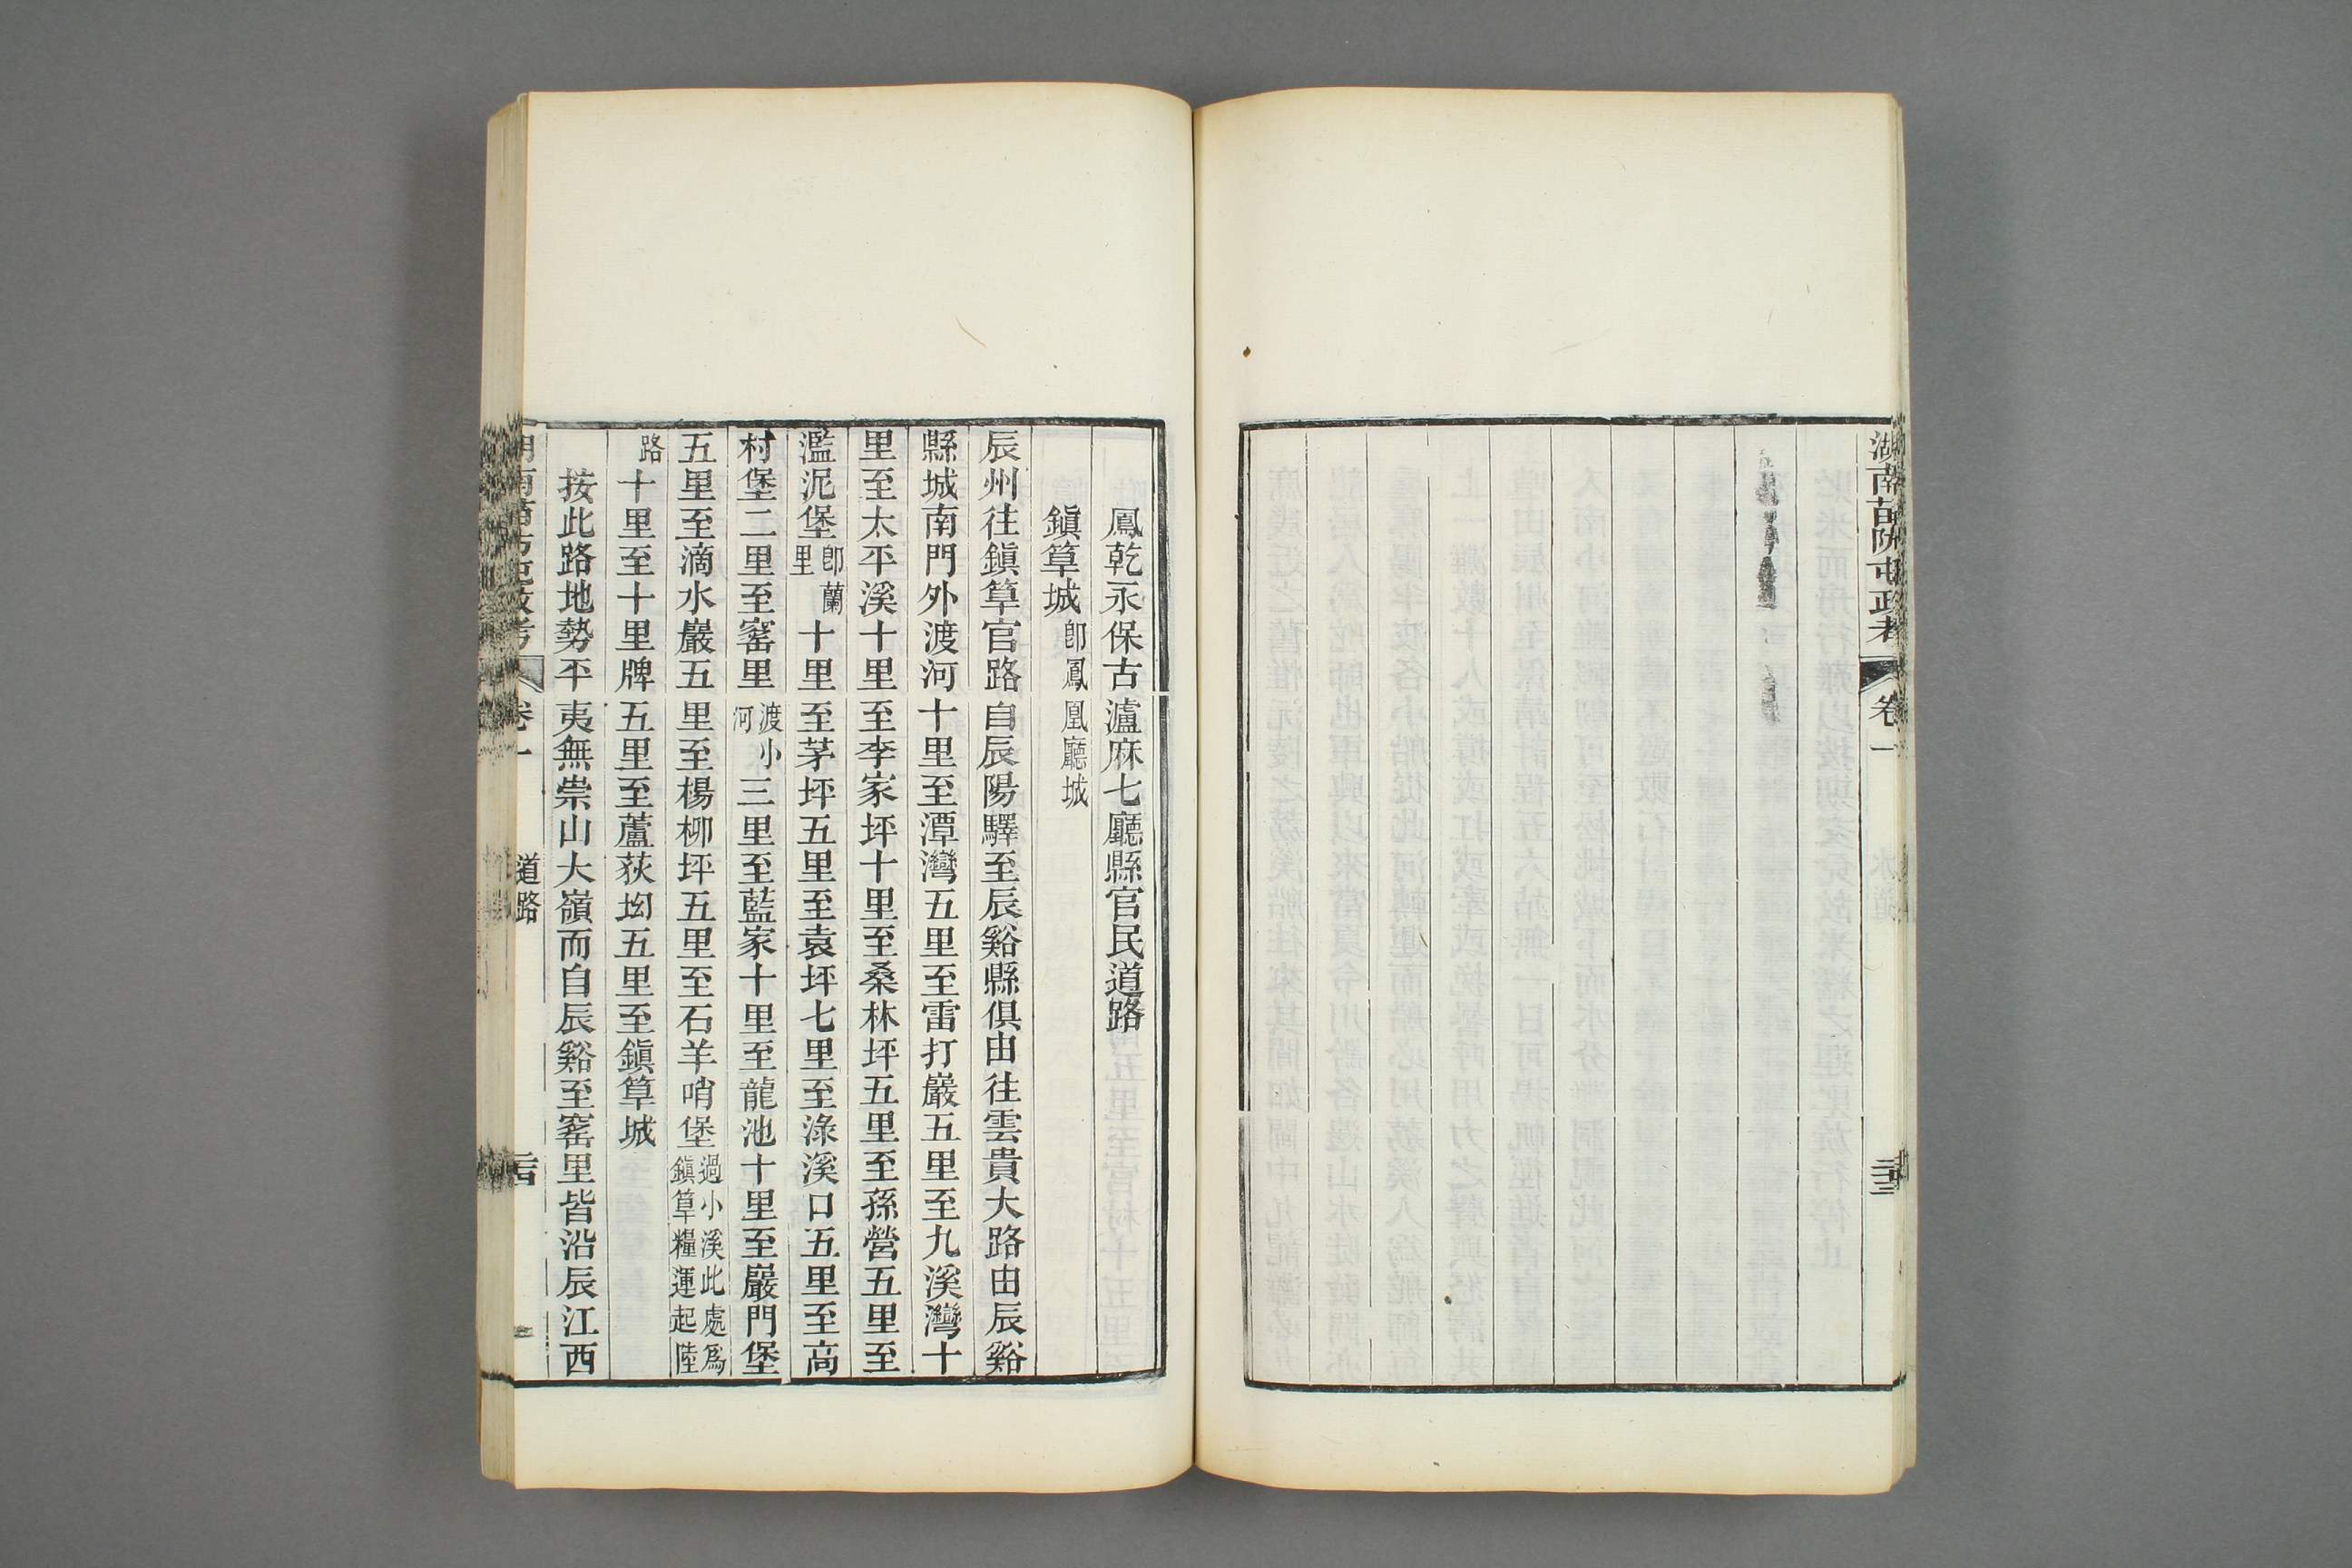 湖南苗防屯政考 卷一 二十三
鳳乾永保古瀘麻七廳縣官民道路
鎮筸城卽鳳凰廳城
辰州往鎮筸官路自辰陽驛至辰谿縣俱由往雲貴大路由辰谿
縣城南門外渡河十里至潭灣五里至雷打巖五里至九溪灣十
里至太平溪十里至李家坪十里至桑林坪五里至孫營五里至
濫泥堡卽蘭里十里至茅坪五里至袁坪七里至淥溪口五里至高
村堡二里至窰里渡小河三里至藍家十里至龍池十里至巖門堡
五里至滴水巖五里至楊柳坪五里至石羊哨堡過小溪此處爲鎮筸糧運起陸
路十里至十里牌五里至蘆荻坳五里至鎮筸城
按此路地勢平夷無崇山大嶺而自辰谿至窰里皆沿辰江西
卷一 道路 二十四